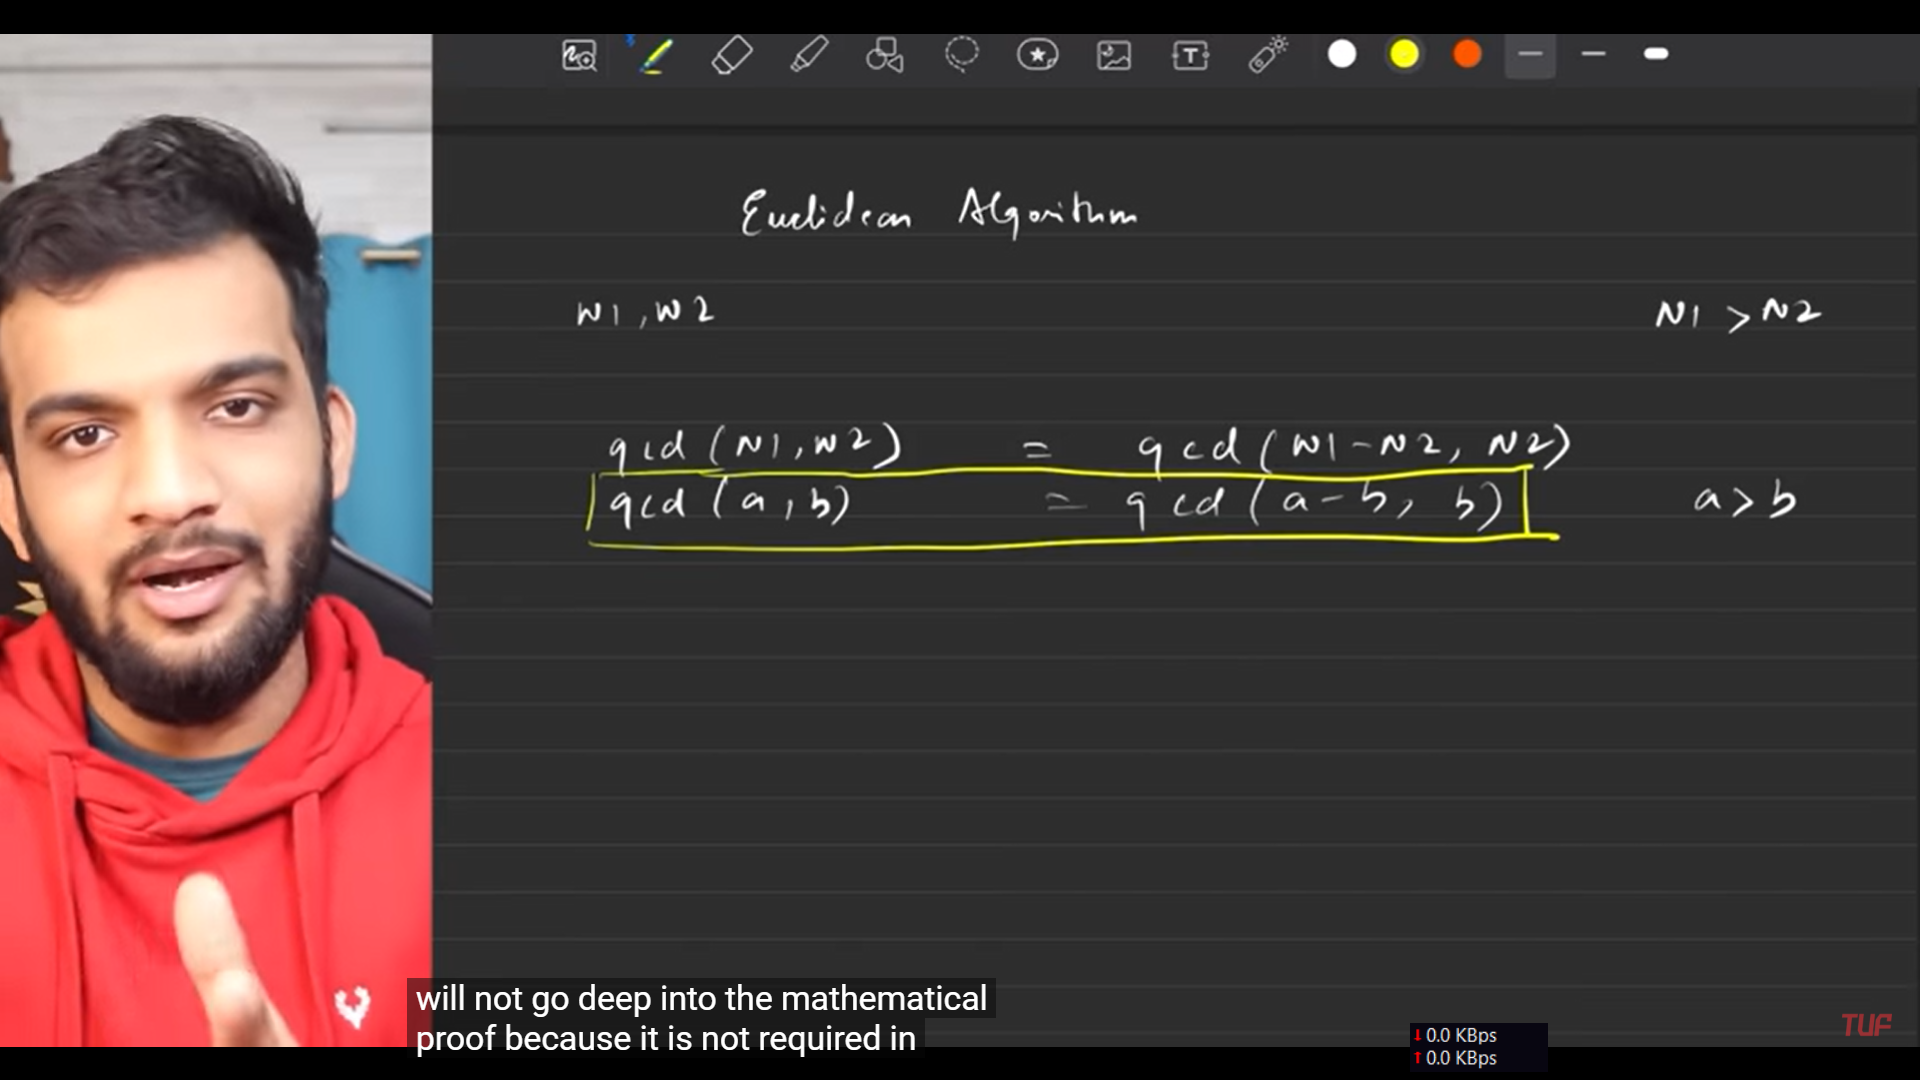 Euclidean Algorithm
N1, N2
N1 > N2
gcd (N1, N2) = gcd (N1 - N2, N2)
gcd (a, b) = gcd (a - b, b)
a > b
will not go deep into the mathematical
proof because it is not required in
TUF
↓ 0.0 KBps
↑ 0.0 KBps